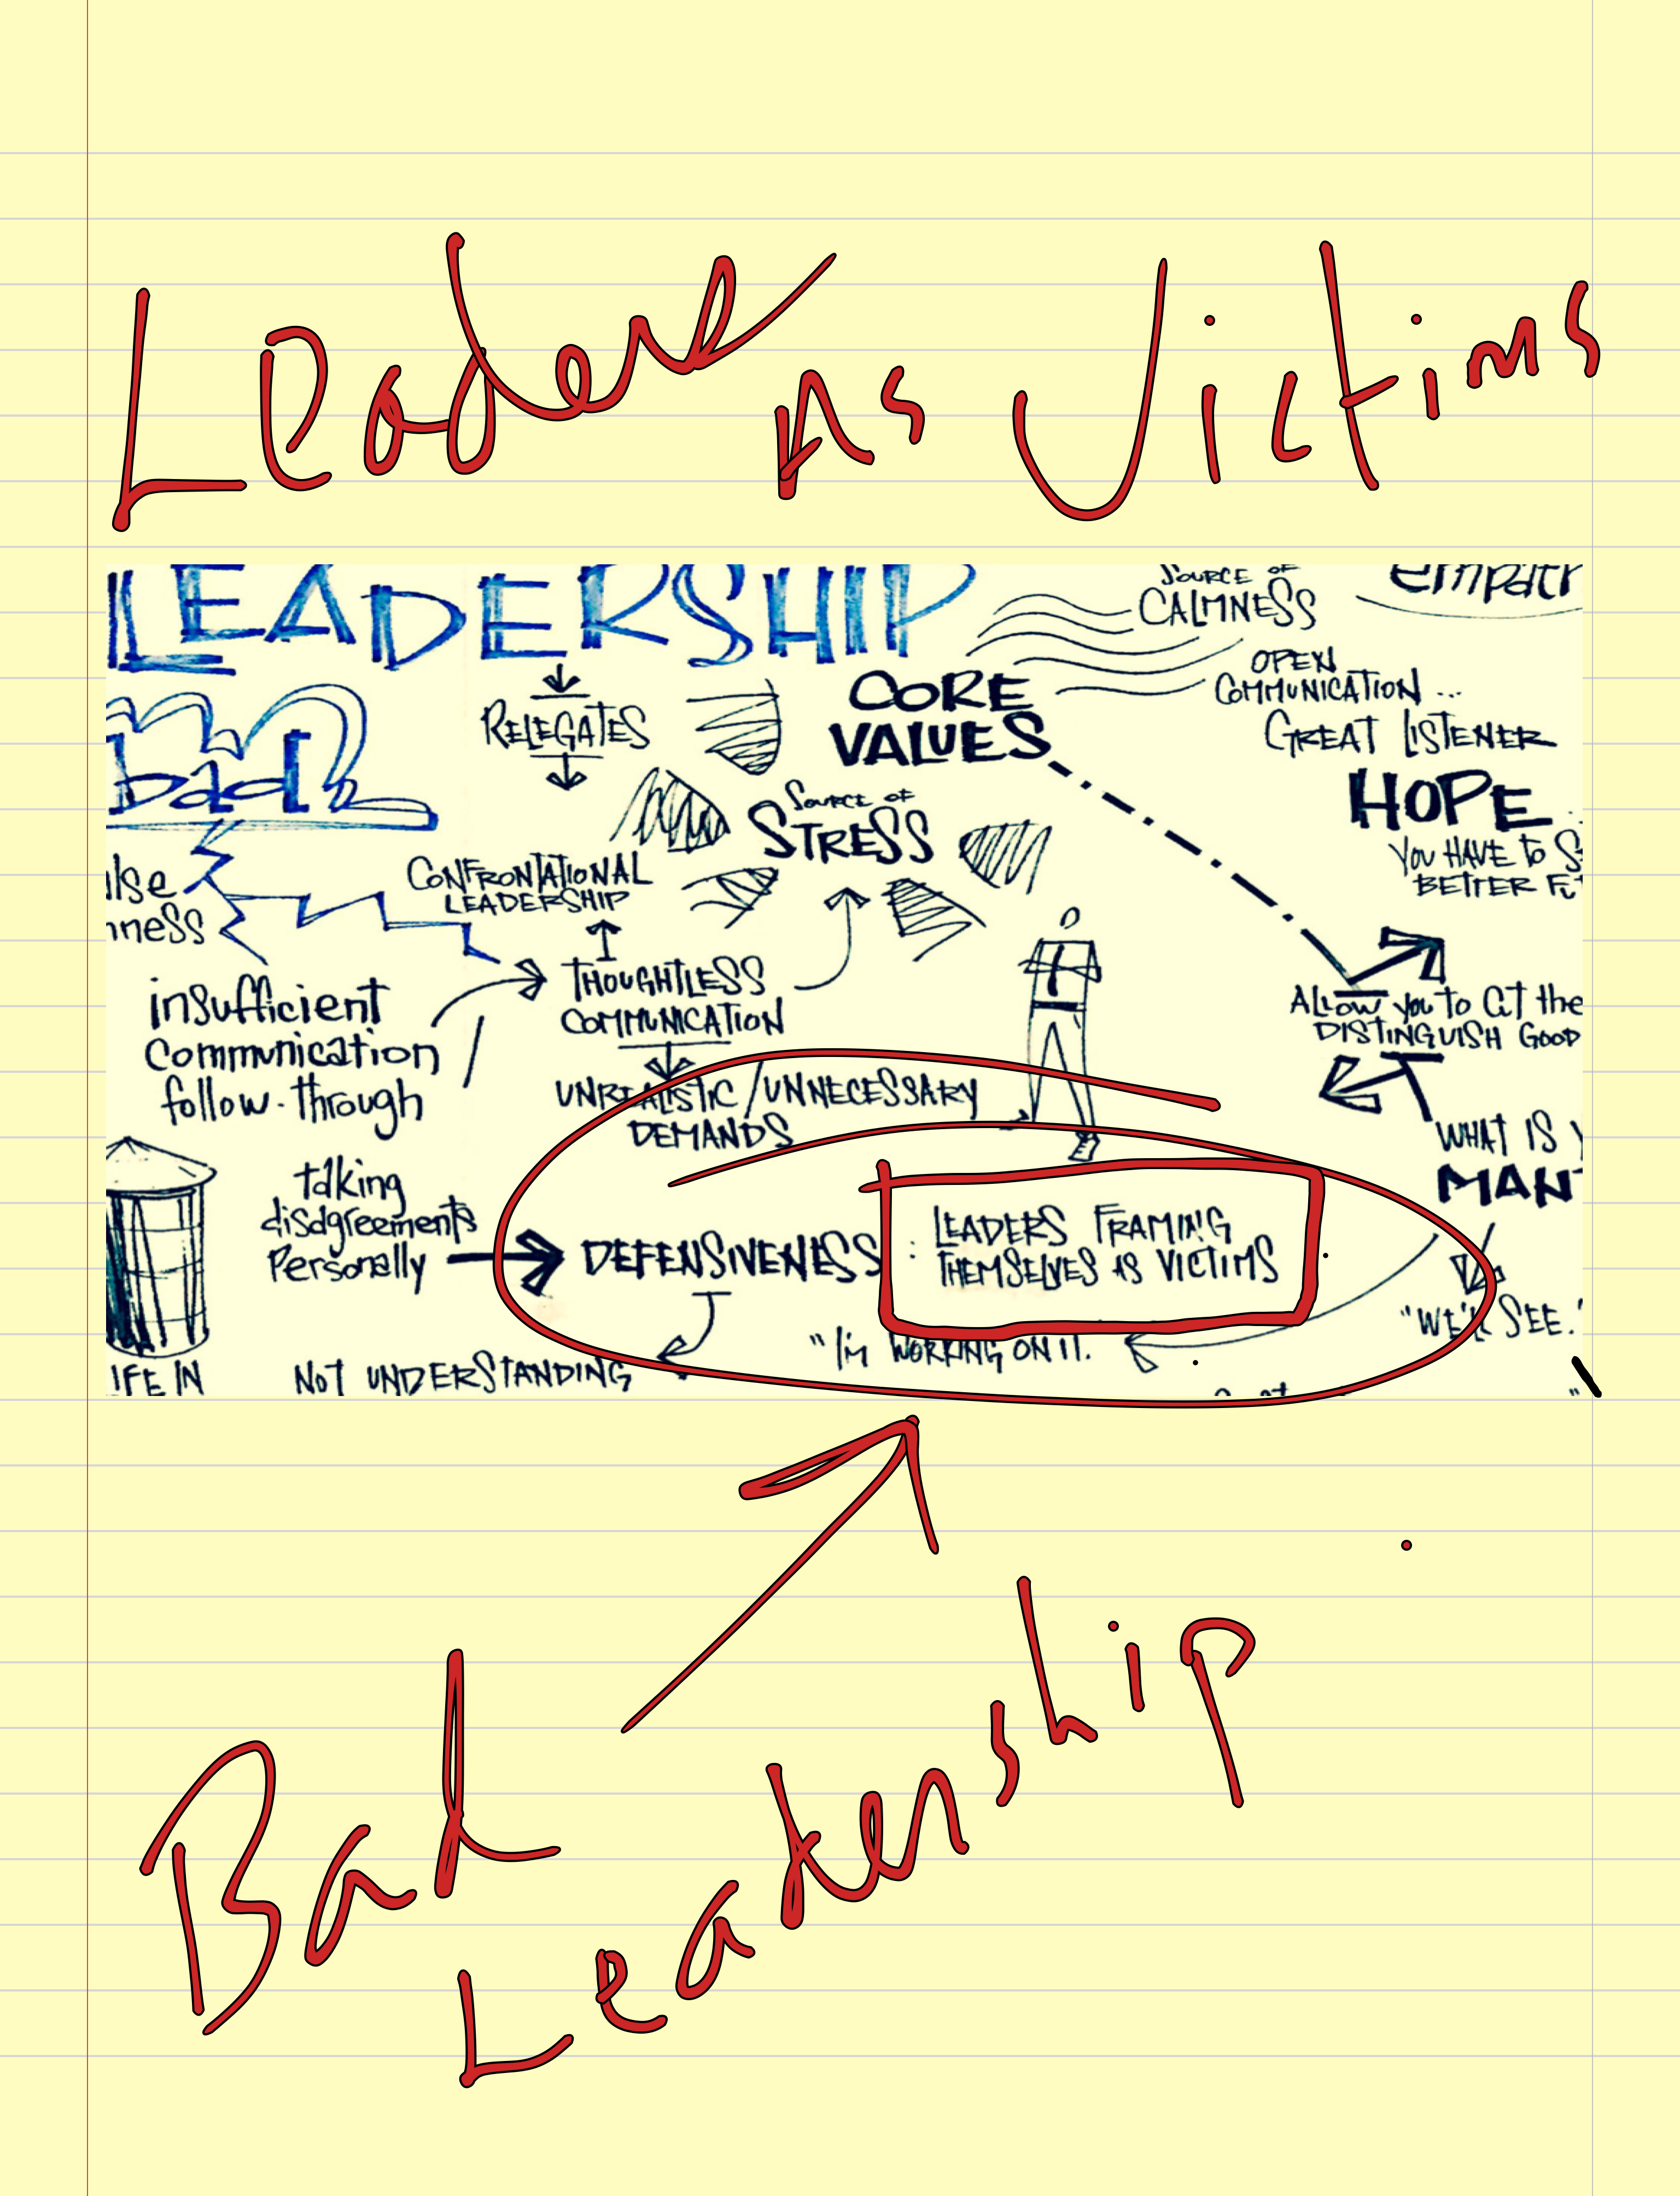 Leaders As Victims
LEADERSHIP
SOURCE OF
CALMNESS
OPEN
COMMUNICATION ...
GREAT LISTENER
HOPE
YOU HAVE to
BETTER
RELEGATES
CORE
VALUES
bad
SOURCE OF
STRESS
CONFRONTATIONAL
LEADERSHIP
THOUGHTLESS
COMMUNICATION
insufficient
Communication
follow-through
ALLOW you to at the
DISTINGUISH GOOD
UNREALISTIC/UNNECESSARY
DEMANDS
WHAT IS
taking
disagreements
Personally
DEFENSIVENESS : LEADERS FRAMING
THEMSELVES AS VICTIMS
"WE'LL SEE."
"I'M WORKING ON IT.
IFE IN
NOT UNDERSTANDING
Bad
Leadership